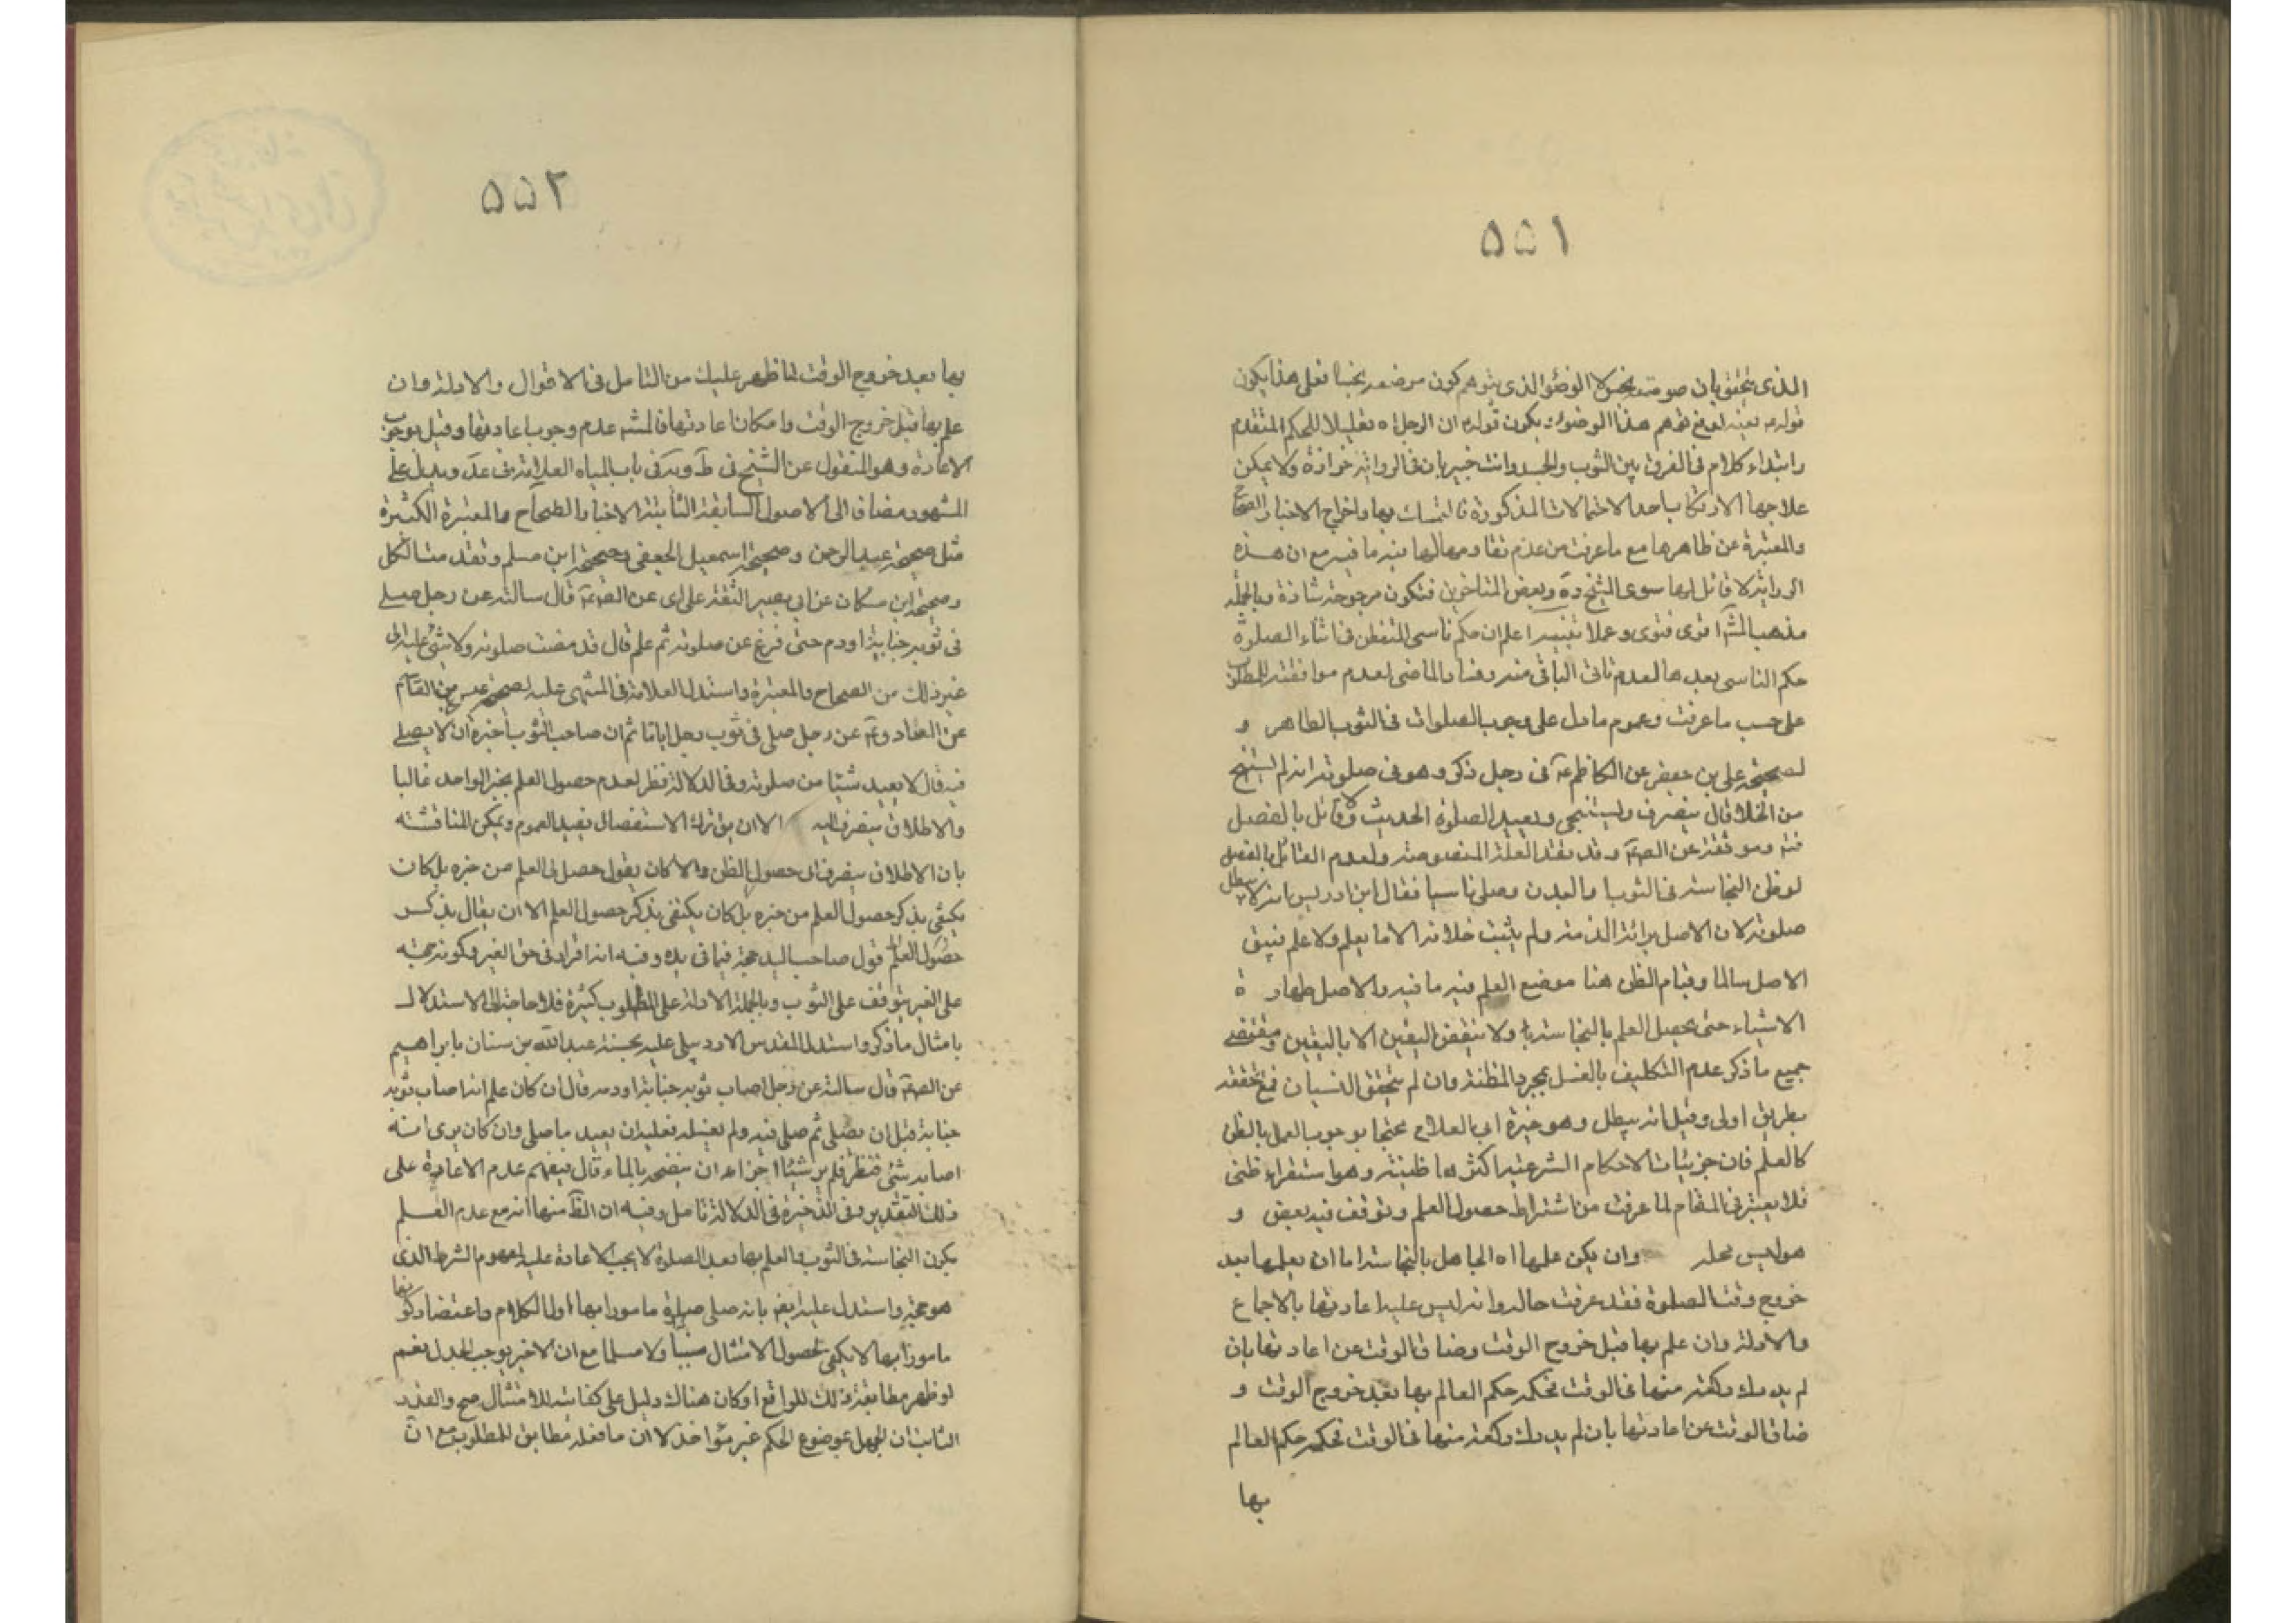 ٥٥١
الذى يتحقق بان صومته بخس لا الوضؤ الذى يتوهم كون موضعه نجسا فعلى هذا يكون
قوله بعينه لدفع توهم هذا الوضوء ويكون قوله ان الرجل اه تعليلا للحكم المتقدم
وابتداء كلام فى الفرق بين الثوب والجسد وانت خبير بان فى الرواية خزازة ولا يمكن
علاجها الا بارتكاب احد الاحتمالات المذكورة فالتمسك بها واخراج الاخبار الصحاح
والمعتبرة عن ظاهرها مع ما عرفت من عدم تقاومها لها فيه ما فيه مع ان هذه
الرواية لا قائل بها سوى الشيخ ره وبعض المتاخرين فتكون مرجوحة شاذة وبالجملة
مذهب المشهٓ اقوى فتوى وعملا تنبيه اعلم ان حكم ناسى المتفطن فى اثناء الصلوة
حكم الناسى بعدها لعدم تاتى الباقى منه وفساد الماضى لعدم موافقته للمطلوب
على حسب ما عرفت وعموم ما دل على وجوب الصلوات فى الثوب الطاهر و
لصحيحة على بن جعفر عن الكاظم عٓ فى رجل ذكر وهو فى صلوته انه لم يستنج
من الخلا قال ينصرف وليستنجى ويعيد الصلوة الحديث ولا قائل بالفصل
فتٓ وموثقته عن الصٓ عٓ وقد بقته العلة المنصوصة ولعدم القائل بالفصل
لو ظن النجاسة فى الثوب او البدن وصلى ناسيا فقال ابن ادريس انه لا يبطل
صلوته لان الاصل برائة الذمة ولم يثبت خلافه الا ما يعلم ولا علم فيبقى
الاصل سالما وقيام الظن هنا موضع العلم فيه ما فيه والاصل طهارة
الاشياء حتى يحصل العلم بالنجاسة بها ولا ينقض اليقين الا باليقين ومقتضى
جميع ما ذكر عدم التكليف بالغسل بمجرد المظنة وان لم يتحقق النسيان فمع تحققه
بطريق اولى وقيل انه يبطل وهو خيرة ابى الصلاح محتجا بوجوب العمل بالظن
كالعلم فان جزئيات الاحكام الشرعية اكثرها ظنية وهو استقراء ظنى
فلا يعتبر فى المقام لما عرفت من اشتراط حصول العلم وتوقف فيه بعض و
هو ليس محله وان يكن علمها اه الجاهل بالنجاسة اما ان يعلمها بعد
خروج وقت الصلوة فقد عرفت حاله وانه ليس عليه اعادتها بالاجماع
والادلة وان علم بها قبل خروج الوقت وضاق الوقت عن اعادتها بان
لم يدرك ركعة منها فى الوقت فحكمه حكم العالم بها بعد خروج الوقت و
ضاق الوقت عن اعادتها بان لم يدرك ركعة منها فى الوقت فحكمه حكم العالم
بها
٥٥٢
بها بعد خروج الوقت لما ظهر عليك من التامل فى الاقوال والادلة وان
علم بها قبل خروج الوقت وامكان اعادتها فالمشهٓ عدم وجوب اعادتها وقيل بوجوب
الاعادة وهو المنقول عن الشيخ فى طٓ ويٓه فى باب المياه العلامة فى عدٓ ويدل على
المشهور مضافا الى الاصول السابقة الثابتة الاخبار الصحاح والمعتبرة الكثيرة
مثل صحيحة عبد الرحمن وصحيحة اسمعيل الجعفى وصحيحة ابن مسلم وتقدمت الكل
وصحيحة ابن مسكان عن ابى بصير الثقة على اى عن الصٓ عٓ قال سالته عن رجل صلى
فى ثوبه جنابة او دم حتى فرغ عن صلوته ثم علم قال قد مضت صلوته ولا شئ عليه الى
غير ذلك من الصحاح والمعتبرة واستدل العلامة فى المنتهى عليه بصحيحة عيص بن القاسم
عن الصادق عٓ عن رجل صلى فى ثوب رجل اياما ثم ان صاحب الثوب اخبره ان لا يصلى
فيه قال لا يعيد شيئا من صلوته وفى الدلالة نظر لعدم حصول العلم بخبر الواحد غالبا
والاطلاق ينصرف اليه الا ان يق ترك الاستفصال يفيد العموم ويمكن المناقشة
بان الاطلاق ينصرف الى حصول الظن والا كان يقول حصل لى العلم من خبره بل كان
يكتفى بذكر حصول العلم من خبره بل كان يكتفى بذكر حصول العلم الا ان يقال بذكر
حصول العلم قول صاحب اليد حجة فيما فى يده وفيه انه اقرار فى حق الغير وكونه حجة
على الغير يتوقف على الثوب وبالجملة الادلة على المطلوب كثيرة فلا حاجة الى الاستدلال
بامثال ما ذكر واستدل المقدس الاردبيلى عليه بحسنة عبد الله بن سنان بابراهيم
عن الصٓ عٓ قال سالته عن رجل اصاب ثوبه جنابة او دم قال ان كان علم انه اصاب ثوبه
جنابة قبل ان يصلى ثم صلى فيه ولم يغسله فعليه ان يعيد ما صلى وان كان يرى انه
اصابه شئ فنظر فلم ير شيئا اجزاه ان ينضحه بالماء قال فيفهم عدم الاعادة على
ذلك التقدير وفى الذخيرة فى الدلالة تامل وفيه ان الظٓ منها انه مع عدم العلم
بكون النجاسة فى الثوب والعلم بها بعد الصلوة لا يجب الاعادة عليه لمفهوم الشرط الذى
هو حجة واستدل عليه ايضٓ بانه صلى صلوة مامورا بها اول الكلام واعتضاد كونها
مامورا بها لا يكفى لحصول الامتثال مبينا ولا مسلما مع ان الاخير يوجب الجدل نعم
لو ظهر مطابقة ذلك للواقع او كان هناك دليل على كفايته للامتثال صح والقدر
الثابت ان الجهل بموضوع الحكم غير مؤاخذ لا ان ما فعله مطابق للمطلوب مع ان